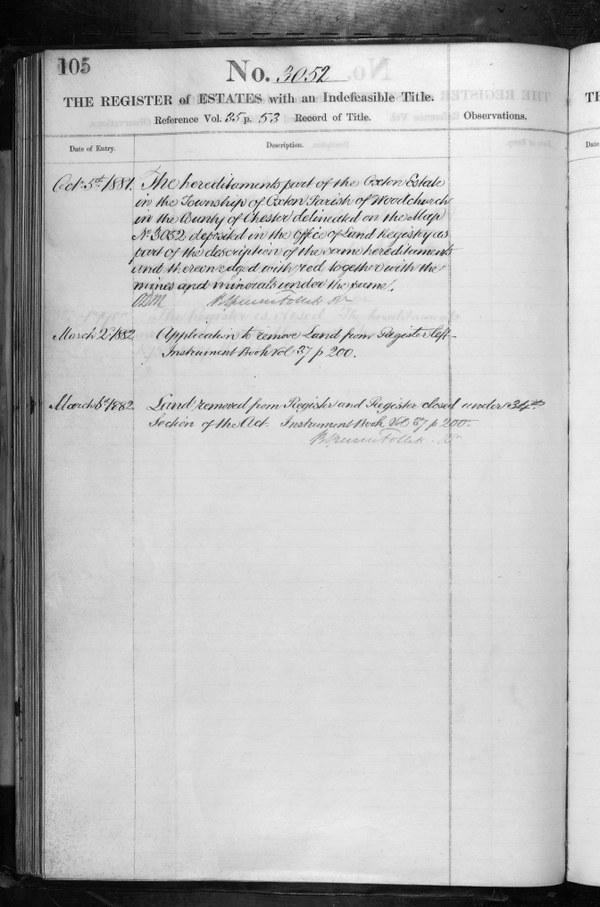 105
No. 3052
THE REGISTER of ESTATES with an Indefeasible Title.
Reference Vol. 35 p. 53 Record of Title.
Observations.
Date of Entry.
Description.
Octr. 5th 1881. The hereditaments part of the Oxton Estate
in the Township of Oxton Parish of Woodchurch
in the County of Chester delineated on the Map
No 3052 deposited in the Office of Land Registry as
part of the description of the same hereditaments
and thereon edged with red together with the
mines and minerals under the same.
March 2d 1882. Application to remove Land from Register left
Instrument Book Vol 37 p 200.
March 8th 1882. Land removed from Register and Register closed under 34th
Section of the Act. Instrument Book Vol 37 p 200.
THE REGISTER
TH
Date